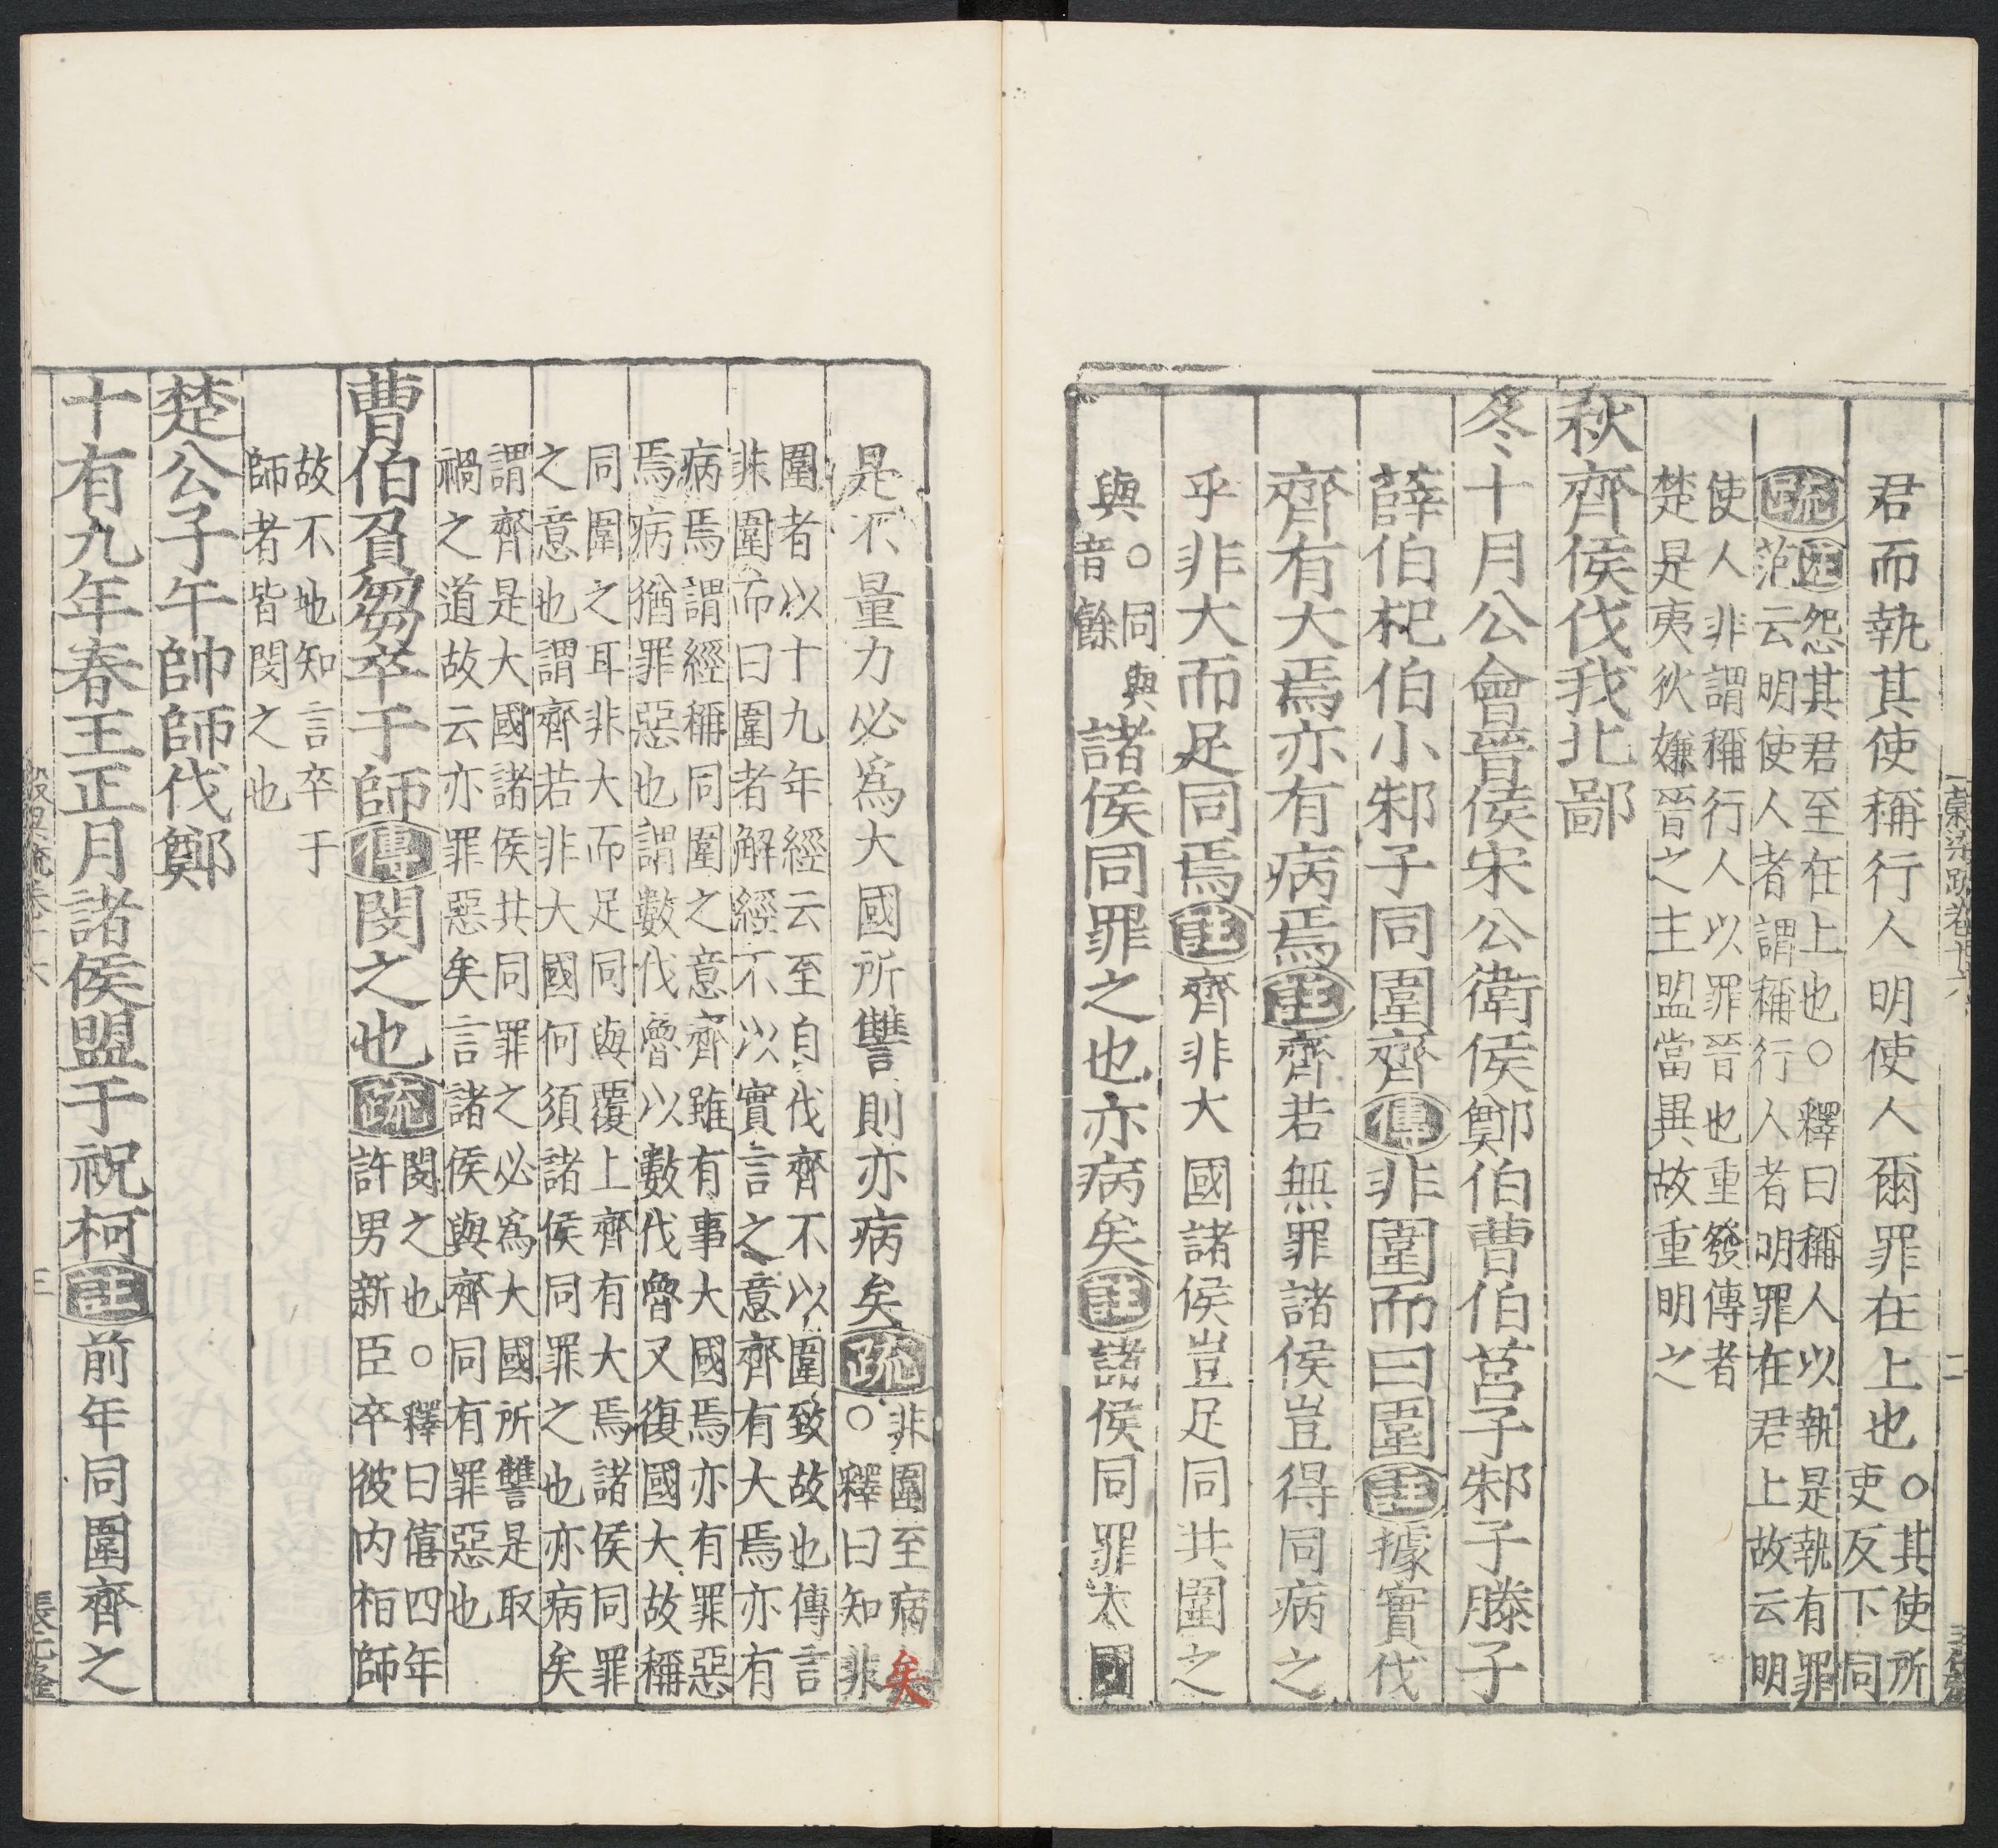 君而執其使稱行人明使人爾罪在上也○其使所
吏反下同
疏注怨其君至在上也○釋曰稱人以執是執有罪
范云明使人者謂稱行人者明罪在君上故云明
使人非謂稱行人以罪晉也重發傳者
楚是夷狄嫌晉之主盟當異故重明之
秋齊侯伐我北鄙
冬十月公會晉侯宋公衛侯鄭伯曹伯莒子邾子滕子
薛伯杞伯小邾子同圍齊傳非圍而曰圍註據實伐
齊有大焉亦有病焉註齊若無罪諸侯豈得同病之
乎非大而足同焉註齊非大國諸侯豈足同共圍之
與○同與
與音餘
諸侯同罪之也亦病矣註諸侯同罪大國
是不量力必爲大國所讐則亦病矣疏非圍至病矣
○釋曰知非
圍者以十九年經云至自伐齊不以圍致故也傳言
非圍而曰圍者解經不以實言之意齊有大焉亦有
病焉謂經稱同圍之意齊雖有事大國焉亦有罪惡
焉病猶罪惡也謂數伐魯以數伐魯又復國大故稱
同圍之耳非大而足同與覆上齊有大焉諸侯同罪
之意也謂齊若非大國何須諸侯同罪之也亦病矣
謂齊是大國諸侯共同罪之必爲大國所讐是取
禍之道故云亦罪惡矣言諸侯與齊同有罪惡也
曹伯負芻卒于師傳閔之也疏閔之也○釋曰僖四年
許男新臣卒彼内栢師
故不地知言卒于
師者皆閔之也
楚公子午帥師伐鄭
十有九年春王正月諸侯盟于祝柯註前年同圍齊之
三